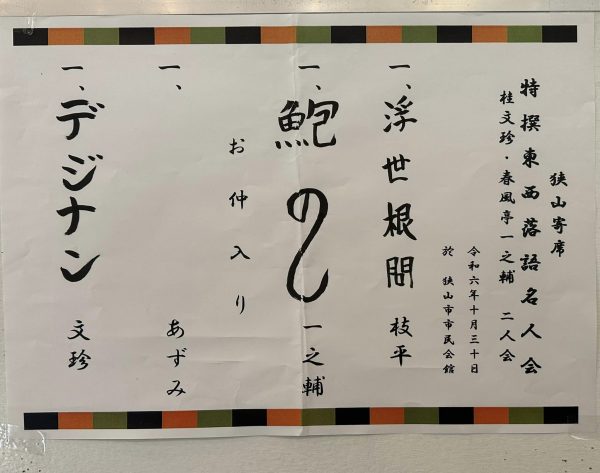 狭山寄席
特撰東西落語名人会
桂文珍・春風亭一之輔 二人会
令和六年十月三十日
於 狭山市市民会館
一、浮世根問 枝平
一、鮑のし 一之輔
お仲入り
一、 あずみ
一、デジナン 文珍